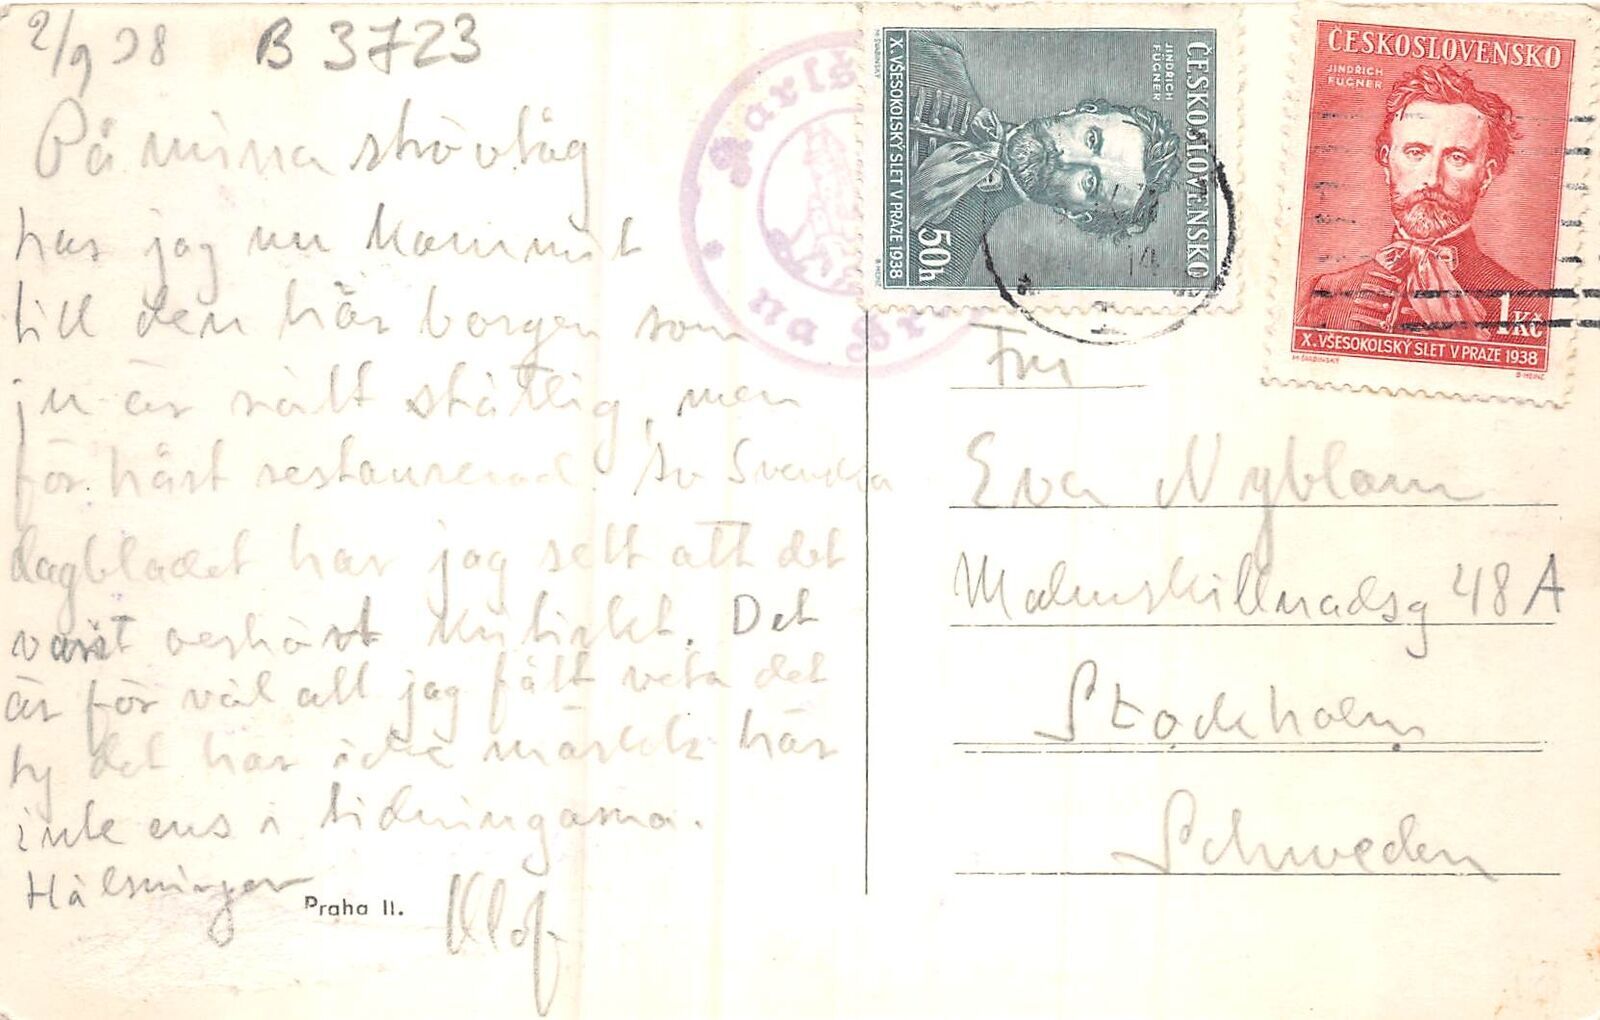 2/9 38
B 3723
På mina strövtåg
har jag nu kommit
till den här borgen som
ju är rätt ståtlig, men
för hårt restaurerad. Av Svenska
dagbladet har jag sett att det
varit oerhört kritiskt. Det
är för väl att jag fått veta det
ty det har icke märkts här
inte ens i tidningarna.
Hälsningar
Olof
Praha II.
Karlš
na
ČESKOSLOVENSKO
JINDŘICH
FÜGNER
50h
X. VŠESOKOLSKÝ SLET V PRAZE 1938
M. ŠVABINSKÝ
B. HEINZ
ČESKOSLOVENSKO
JINDŘICH
FÜGNER
1Kč
X. VŠESOKOLSKÝ SLET V PRAZE 1938
M. ŠVABINSKÝ
B. HEINZ
14
Eva Nyblom
Malmskillnadsg 48 A
Stockholm
Schweden